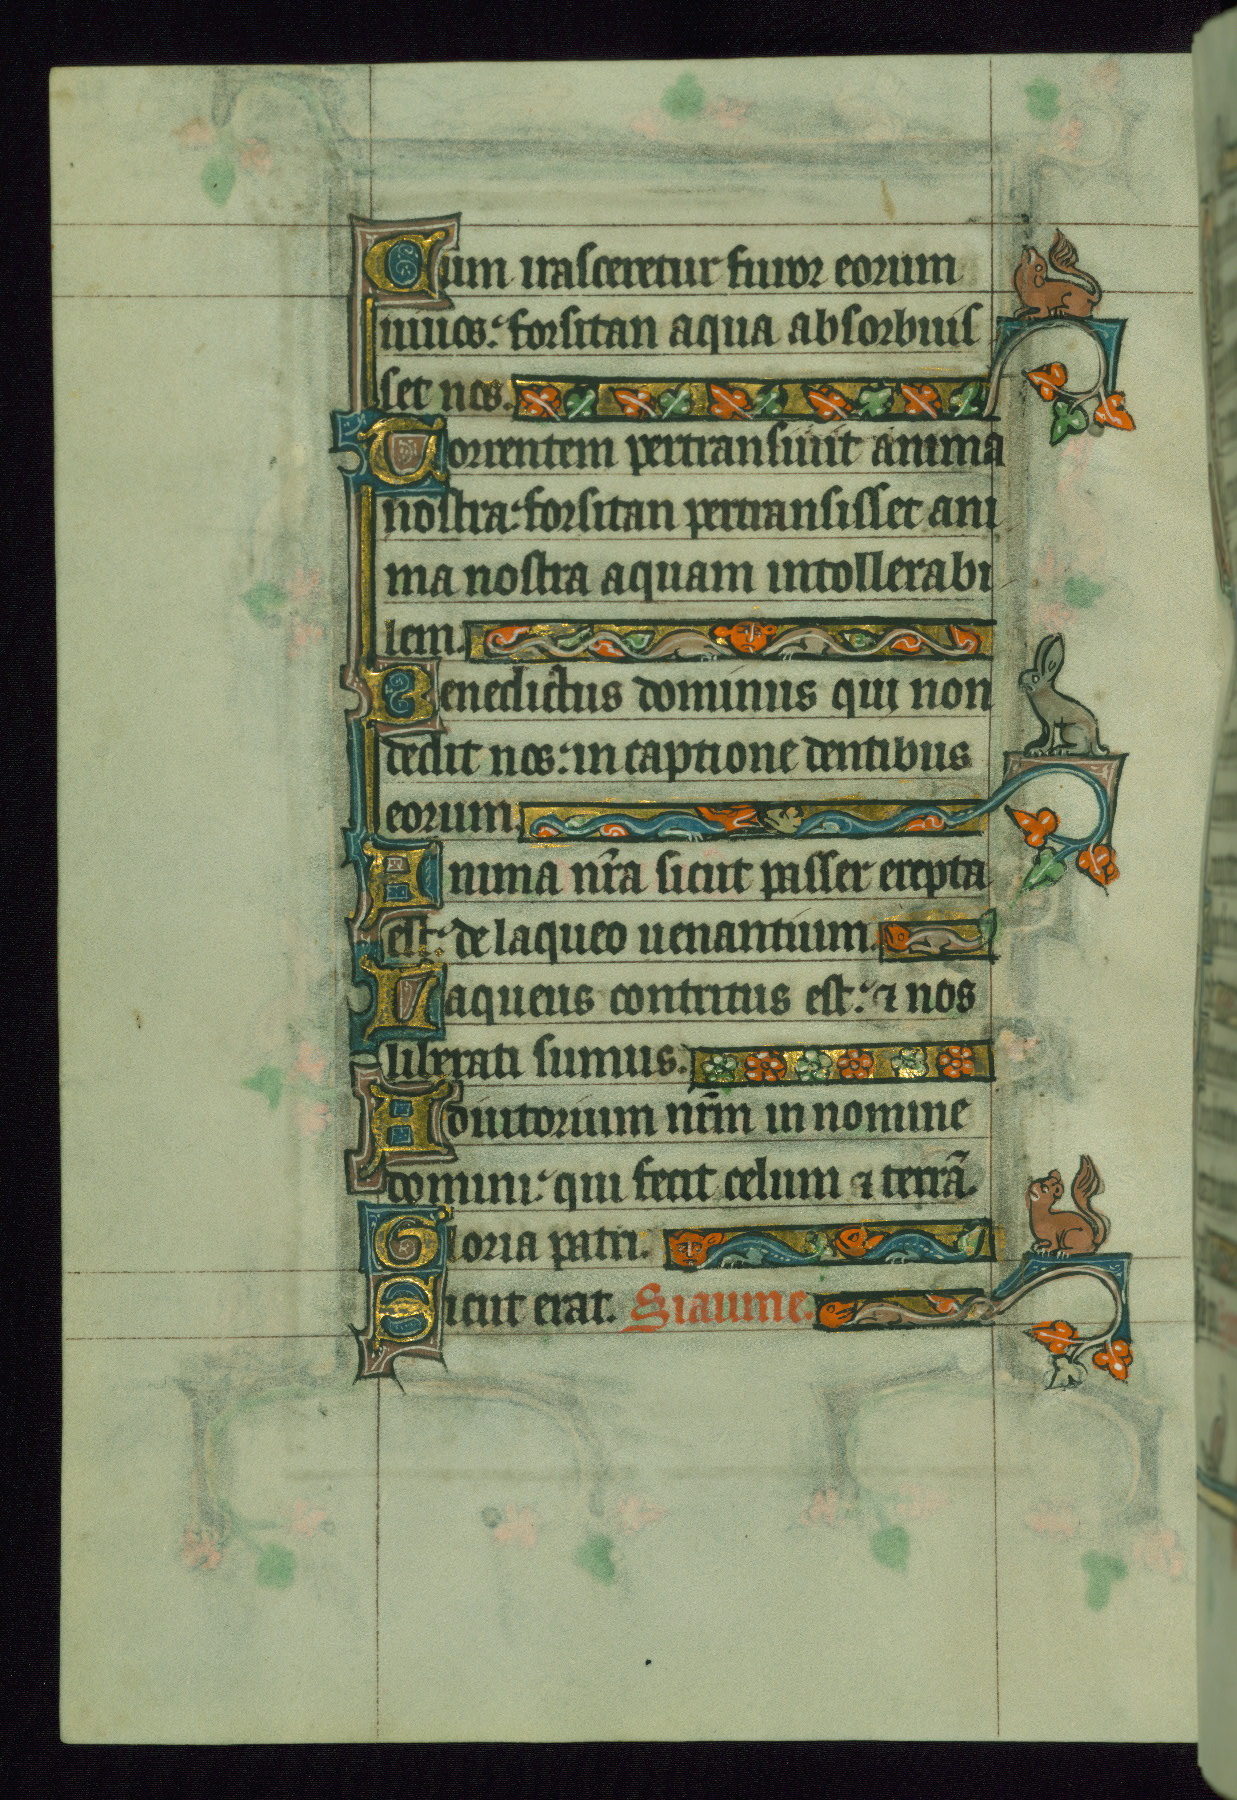 Cum irasceretur furor eorum
in nos: forsitan aqua absorbuis
set nos.
Torrentem pertransiuit anima
nostra: forsitan pertransisset ani
ma nostra aquam intollerabi
lem.
Benedictus dominus qui non
dedit nos: in captione dentibus
eorum.
Anima nr̄a sicut passer erepta
est: de laqueo uenantium.
Laqueus contritus est: ⁊ nos
liberati sumus.
Adiutorium nr̄m in nomine
domini: qui fecit celum ⁊ terrā.
Gloria patri.
Sicut erat. Siaume.